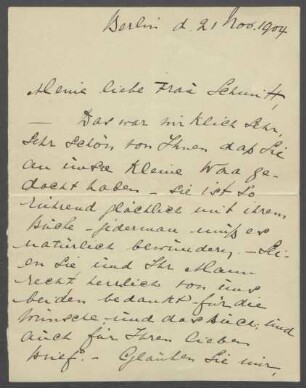 Berlin d. 21 Nov. 1904
Meine liebe Frau Schmitt,
— Das war wirklich sehr,
sehr schön von Ihnen daß Sie
an unsre kleine Waa ge-
dacht haben — Sie ist so
rührend glücklich mit ihrem
Buche — jederman muß es
natürlich bewundern. — Sei-
en Sie und Ihr Mann
recht herzlich von uns
beiden bedankt für die
Wünsche und das Buch, und
auch für Ihren lieben
Brief. — Glauben Sie mir,